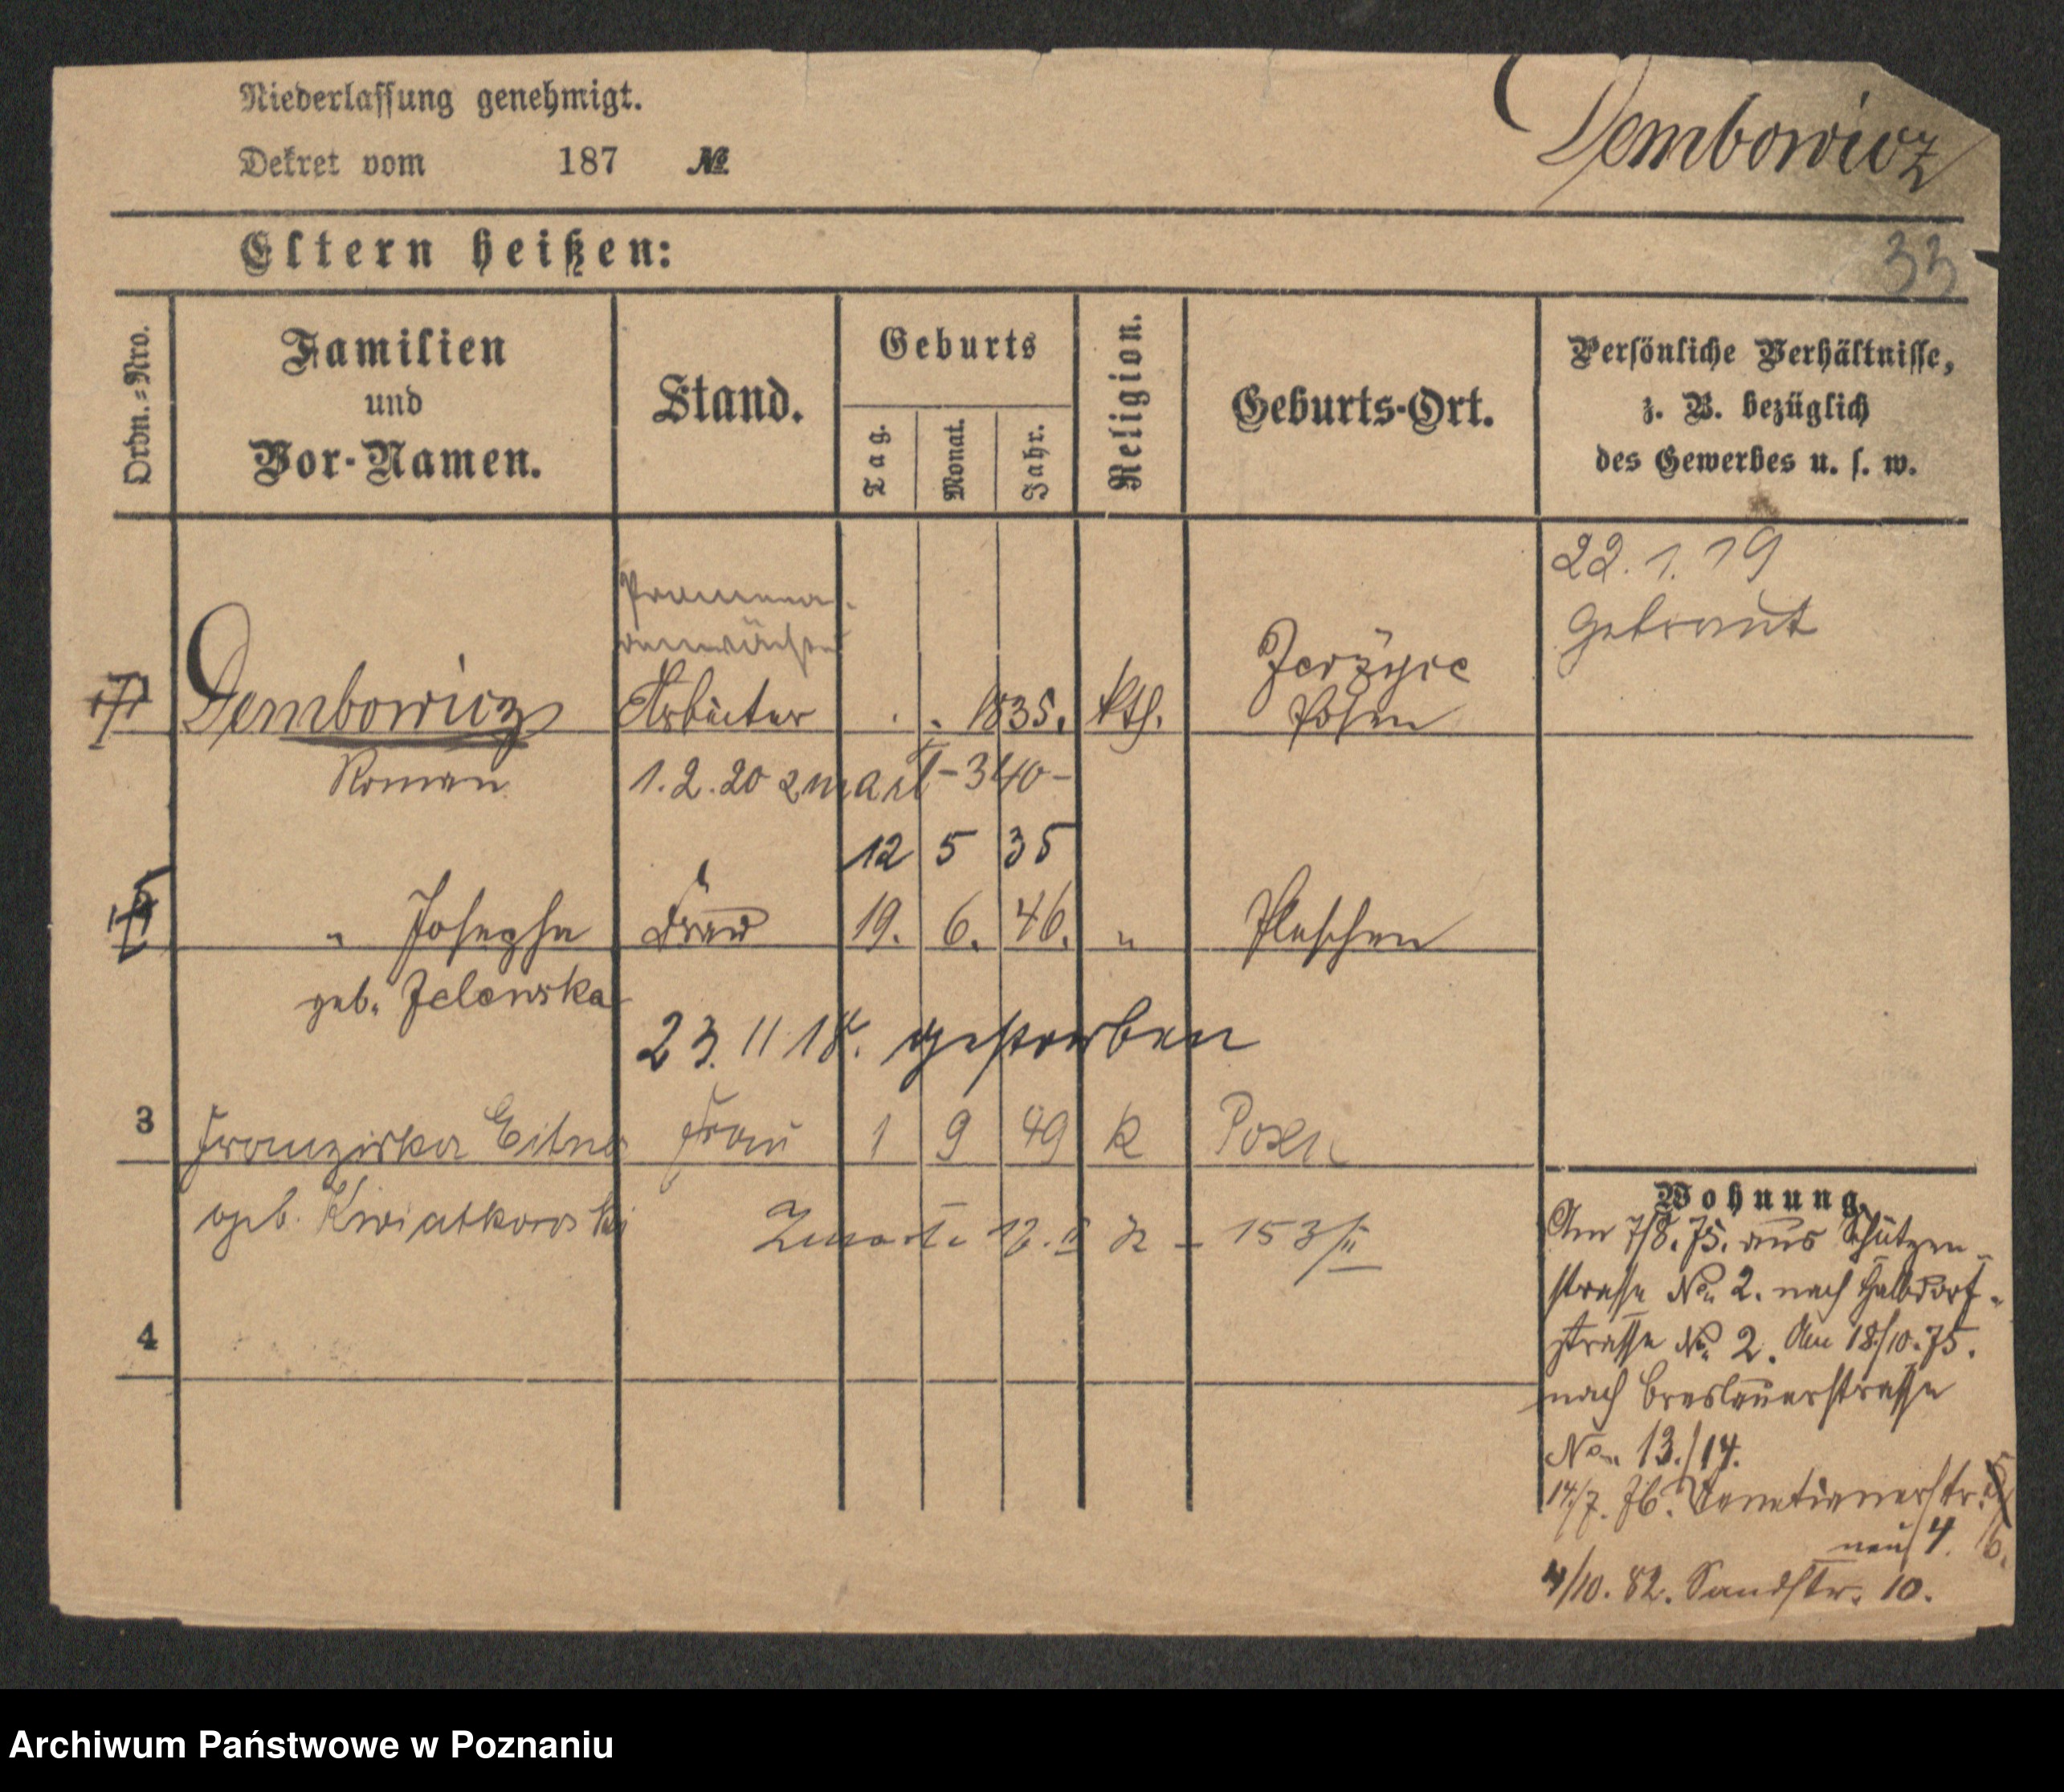 Niederlassung genehmigt.
Dekret vom 187 №
Dembowicz
Eltern heißen:
33
Ordn.=Nro.
Familien
und
Vor-Namen.
Stand.
Geburts
Tag.
Monat.
Jahr.
Religion.
Geburts-Ort.
Persönliche Verhältnisse,
z. B. bezüglich
des Gewerbes u. s. w.
22. 1. 19
getraut
Dembowicz Arbeiter 1835. kth. Jerzyce
Posen
Roman 1.2.20 zmarł - 340 -
12 5 35
" Josepha Frau 19. 6. 46. " Pleschen
geb. Zelewska
23. 11 18. gestorben
3 Franziska Eitner Frau 1 9 49 k Posen
geb. Kwiatkowski
153/II
4
Wohnung.
Am 7/8. 75. aus Schützen-
strasse No. 2. nach Halbdorf-
strasse No. 2. Am 18/10. 75.
nach Breslauerstrasse
No. 13./14.
14/7. 76. Venetianerstr.
neu 4. 6.
4/10. 82. Sandstr. 10.
Archiwum Państwowe w Poznaniu